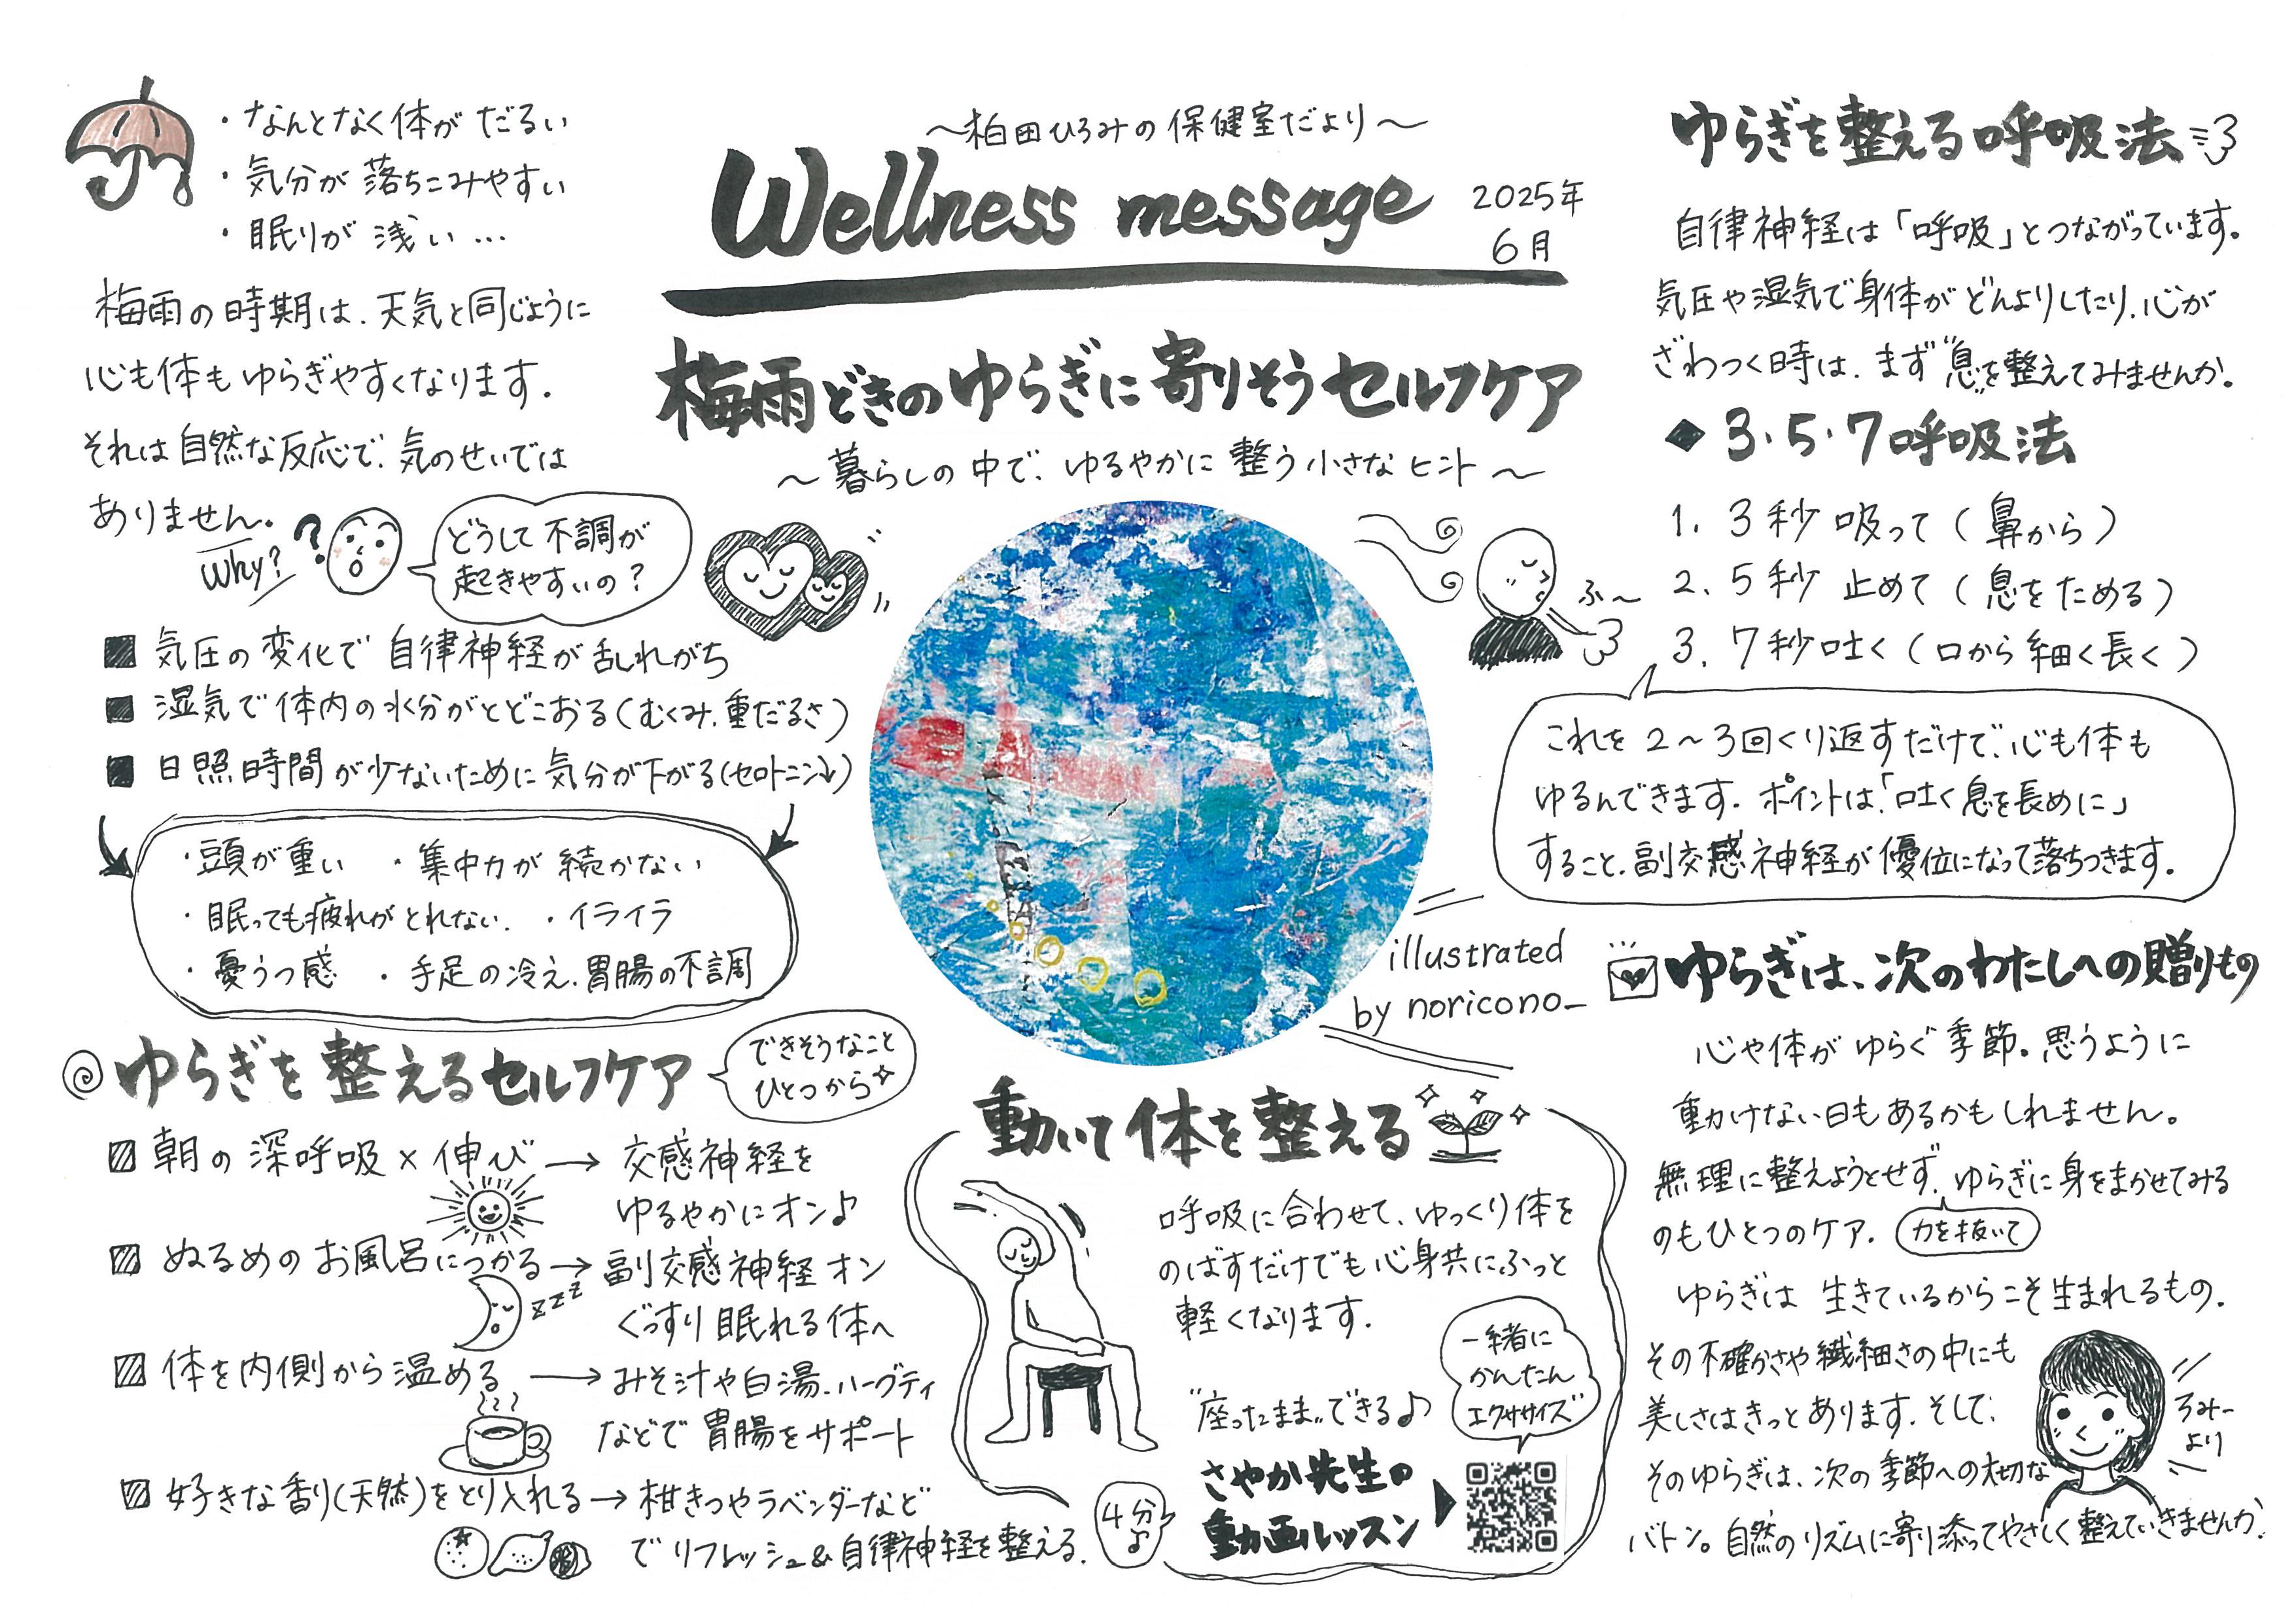 ・なんとなく体がだるい
・気分が落ちこみやすい
・眠りが浅い…
梅雨の時期は、天気と同じように
心も体もゆらぎやすくなります。
それは自然な反応で、気のせいでは
ありません。
Why?
?
どうして不調が
起きやすいの?
■ 気圧の変化で自律神経が乱れがち
■ 湿気で体内の水分がとどこおる(むくみ、重だるさ)
■ 日照時間が少ないために気分が下がる(セロトニン↓)
・頭が重い ・集中力が続かない
・眠っても疲れがとれない. ・イライラ
・憂うつ感 ・手足の冷え、胃腸の不調
ゆらぎを整えるセルフケア
できそうなこと
ひとつから
朝の深呼吸×伸び → 交感神経を
ゆるやかにオン♪
ぬるめのお風呂につかる → 副交感神経オン
zzz
ぐっすり眠れる体へ
体を内側から温める → みそ汁や白湯、ハーブティ
などで胃腸をサポート
好きな香り(天然)をとり入れる → 柑きつやラベンダーなど
でリフレッシュ&自律神経を整える.
〜柏田ひろみの保健室だより〜
Wellness message
2025年
6月
梅雨どきのゆらぎに寄りそうセルフケア
〜暮らしの中で、ゆるやかに整う小さなヒント〜
illustrated
by noricono_
動いて体を整える
呼吸に合わせて、ゆっくり体を
のばすだけでも心身共にふっと
軽くなります.
一緒に
かんたん
エクササイズ
"座ったまま"できる♪
さやか先生の
動画レッスン
4分♪
ゆらぎを整える呼吸法
自律神経は「呼吸」とつながっています。
気圧や湿気で身体がどんよりしたり、心が
ざわつく時は、まず"息"を整えてみませんか。
◆ 3・5・7呼吸法
1. 3秒 吸って(鼻から)
2. 5秒 止めて(息をためる)
3. 7秒吐く(口から細く長く)
ふ〜
これを2〜3回くり返すだけで、心も体も
ゆるんできます. ポイントは、「吐く息を長めに」
すること、副交感神経が優位になって落ちつきます.
ゆらぎは、次のわたしへの贈りもの
心や体がゆらぐ季節。思うように
動かけない日もあるかもしれません。
無理に整えようとせず、ゆらぎに身をまかせてみる
のもひとつのケア.
力を抜いて
ゆらぎは 生きているからこそ生まれるもの.
その不確かさや繊細さの中にも
美しさはきっとあります. そして、
そのゆらぎは、次の季節への大切な
バトン。自然のリズムに寄り添ってやさしく整えていきませんか.
ろみー
より